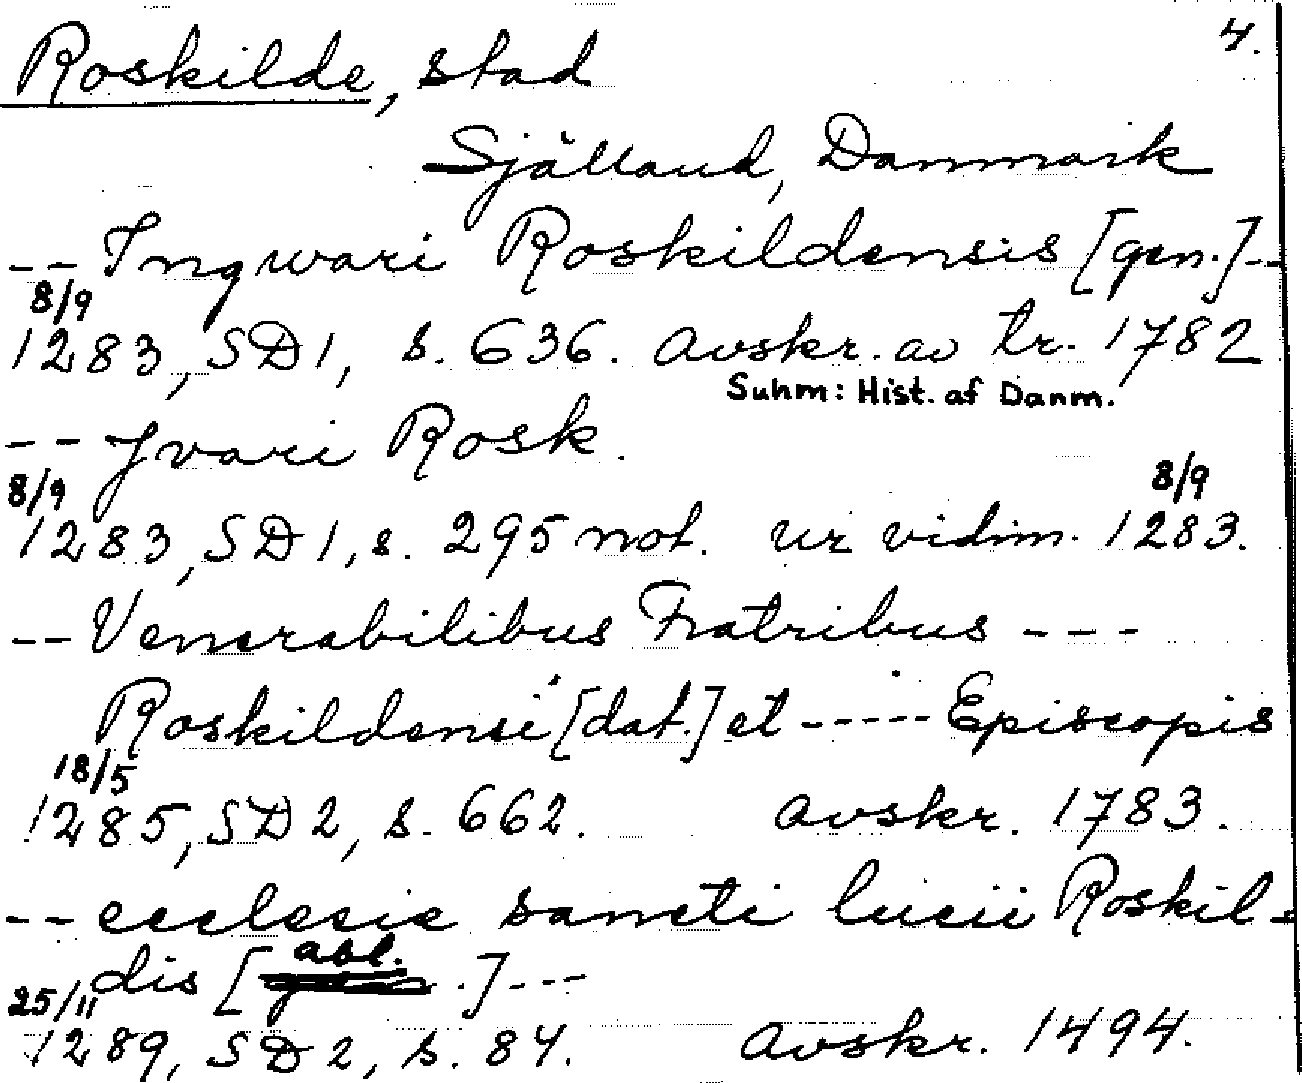 4.
Roskilde, stad
Själland, Danmark
-- Ingwari Roskildensis [gen.]--
8/9
1283, SD1, s. 636. Avskr. av tr. 1782
Suhm: Hist. af Danm.
-- Jvari Rosk.
8/9 8/9
1283, SD1, s. 295 not. ur vidim. 1283.
-- Venerabilibus Fratribus ---
Roskildensi [dat.] et ----- Episcopis
18/5
1285, SD2, s. 662. Avskr. 1783.
-- ecclesie sancti lucii Roskil-
abl.
dis [ .]---
25/11
1289, SD2, s. 84. Avskr. 1494.